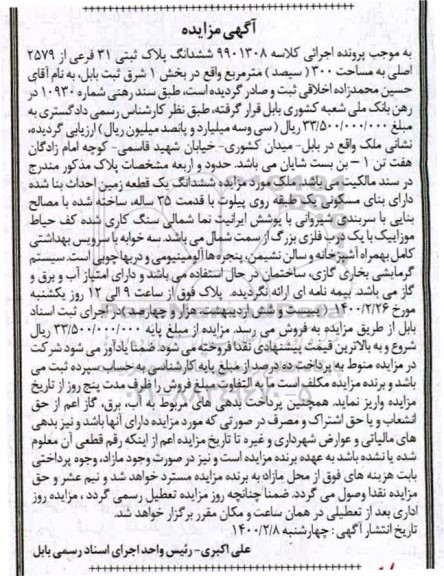 آگهی مزایده
به موجب پرونده اجرائی کلاسه ۹۹۰۱۳۰۸ ششدانگ پلاک ثبتی ۳۱ فرعی از ۲۵۷۹
اصلی به مساحت ۳۰۰ ( سیصد ) مترمربع واقع در بخش ۱ شرق ثبت بابل، به نام آقای
حسین محمدزاده اخلاقی ثبت و صادر گردیده است، طبق سند رهنی شماره ۱۰۹۳۰ در
رهن بانک ملی شعبه کشوری بابل قرار گرفته، طبق نظر کارشناس رسمی دادگستری به
مبلغ ۳۳/۵۰۰/۰۰۰/۰۰۰ ریال ( سی وسه میلیارد و پانصد میلیون ریال ) ارزیابی گردیده،
نشانی ملک واقع در بابل- میدان کشوری- خیابان شهید قاسمی- کوچه امام زادگان
هفت تن ۱ – بن بست شایان می باشد. حدود و اربعه مشخصات پلاک مذکور مندرج
در سند مالکیت می باشد. ملک مورد مزایده ششدانگ یک قطعه زمین احداث بنا شده
دارای بنای مسکونی یک طبقه روی پیلوت با قدمت ۳۵ ساله، ساخته شده با مصالح
بنایی با سربندی شیروانی با پوشش ایرانیت نما شمالی سنگ کاری شده کف حیاط
موزاییک با یک درب فلزی بزرگ از سمت شمال می باشد. سه خوابه با سرویس بهداشتی
کامل بهمراه آشپزخانه و سالن نشیمن، پنجره ها آلومینیومی و دربها چوبی است. سیستم
گرمایشی بخاری گازی، ساختمان در حال استفاده می باشد و دارای امتیاز آب و برق و
گاز می باشد. بیمه نامه ای ارائه نگردیده. پلاک فوق از ساعت ۹ الی ۱۲ روز یکشنبه
مورخ ۱۴۰۰/۲/۲۶ ( بیست و شش اردیبهشت هزار و چهارصد) در اجرای ثبت اسناد
بابل از طریق مزایده به فروش می رسد. مزایده از مبلغ پایه ۳۳/۵۰۰/۰۰۰/۰۰۰ ریال
شروع و به بالاترین قیمت پیشنهادی نقدا فروخته می شود. ضمنا یادآور می شود شرکت
در مزایده منوط به پرداخت ده درصد از مبلغ پایه کارشناسی به حساب سپرده ثبت می
باشد و برنده مزایده مکلف است ما به التفاوت مبلغ فروش را ظرف مدت پنج روز از تاریخ
مزایده واریز نماید. همچنین پرداخت بدهی های مربوط به آب، برق، گاز اعم از حق
انشعاب و یا حق اشتراک و مصرف در صورتی که مورد مزایده دارای آنها باشد و نیز بدهی
های مالیاتی و عوارض شهرداری و غیره تا تاریخ مزایده اعم از اینکه رقم قطعی آن معلوم
شده یا نشده باشد به عهده برنده مزایده است و نیز در صورت وجود مازاد، وجوه پرداختی
بابت هزینه های فوق از محل مازاد به برنده مزایده مسترد خواهد شد و نیم عشر و حق
مزایده نقدا وصول می گردد. ضمنا چنانچه روز مزایده تعطیل رسمی گردد ، مزایده روز
اداری بعد از تعطیلی در همان ساعت و مکان مقرر برگزار خواهد شد.
تاریخ انتشار آگهی : چهارشنبه ۱۴۰۰/۲/۸
علی اکبری- رئیس واحد اجرای اسناد رسمی بابل